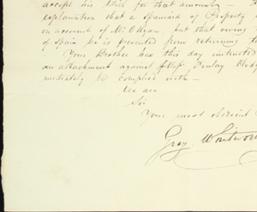 accept his Bill for that amount —
explanation that a Demand of Property
on account of Mr. but that owing
of Spain he is prevented from returning to
Your Brother has this day instructed
an attachment against
mediately be complied with —
We are
Sir
Your most obedient
Gray